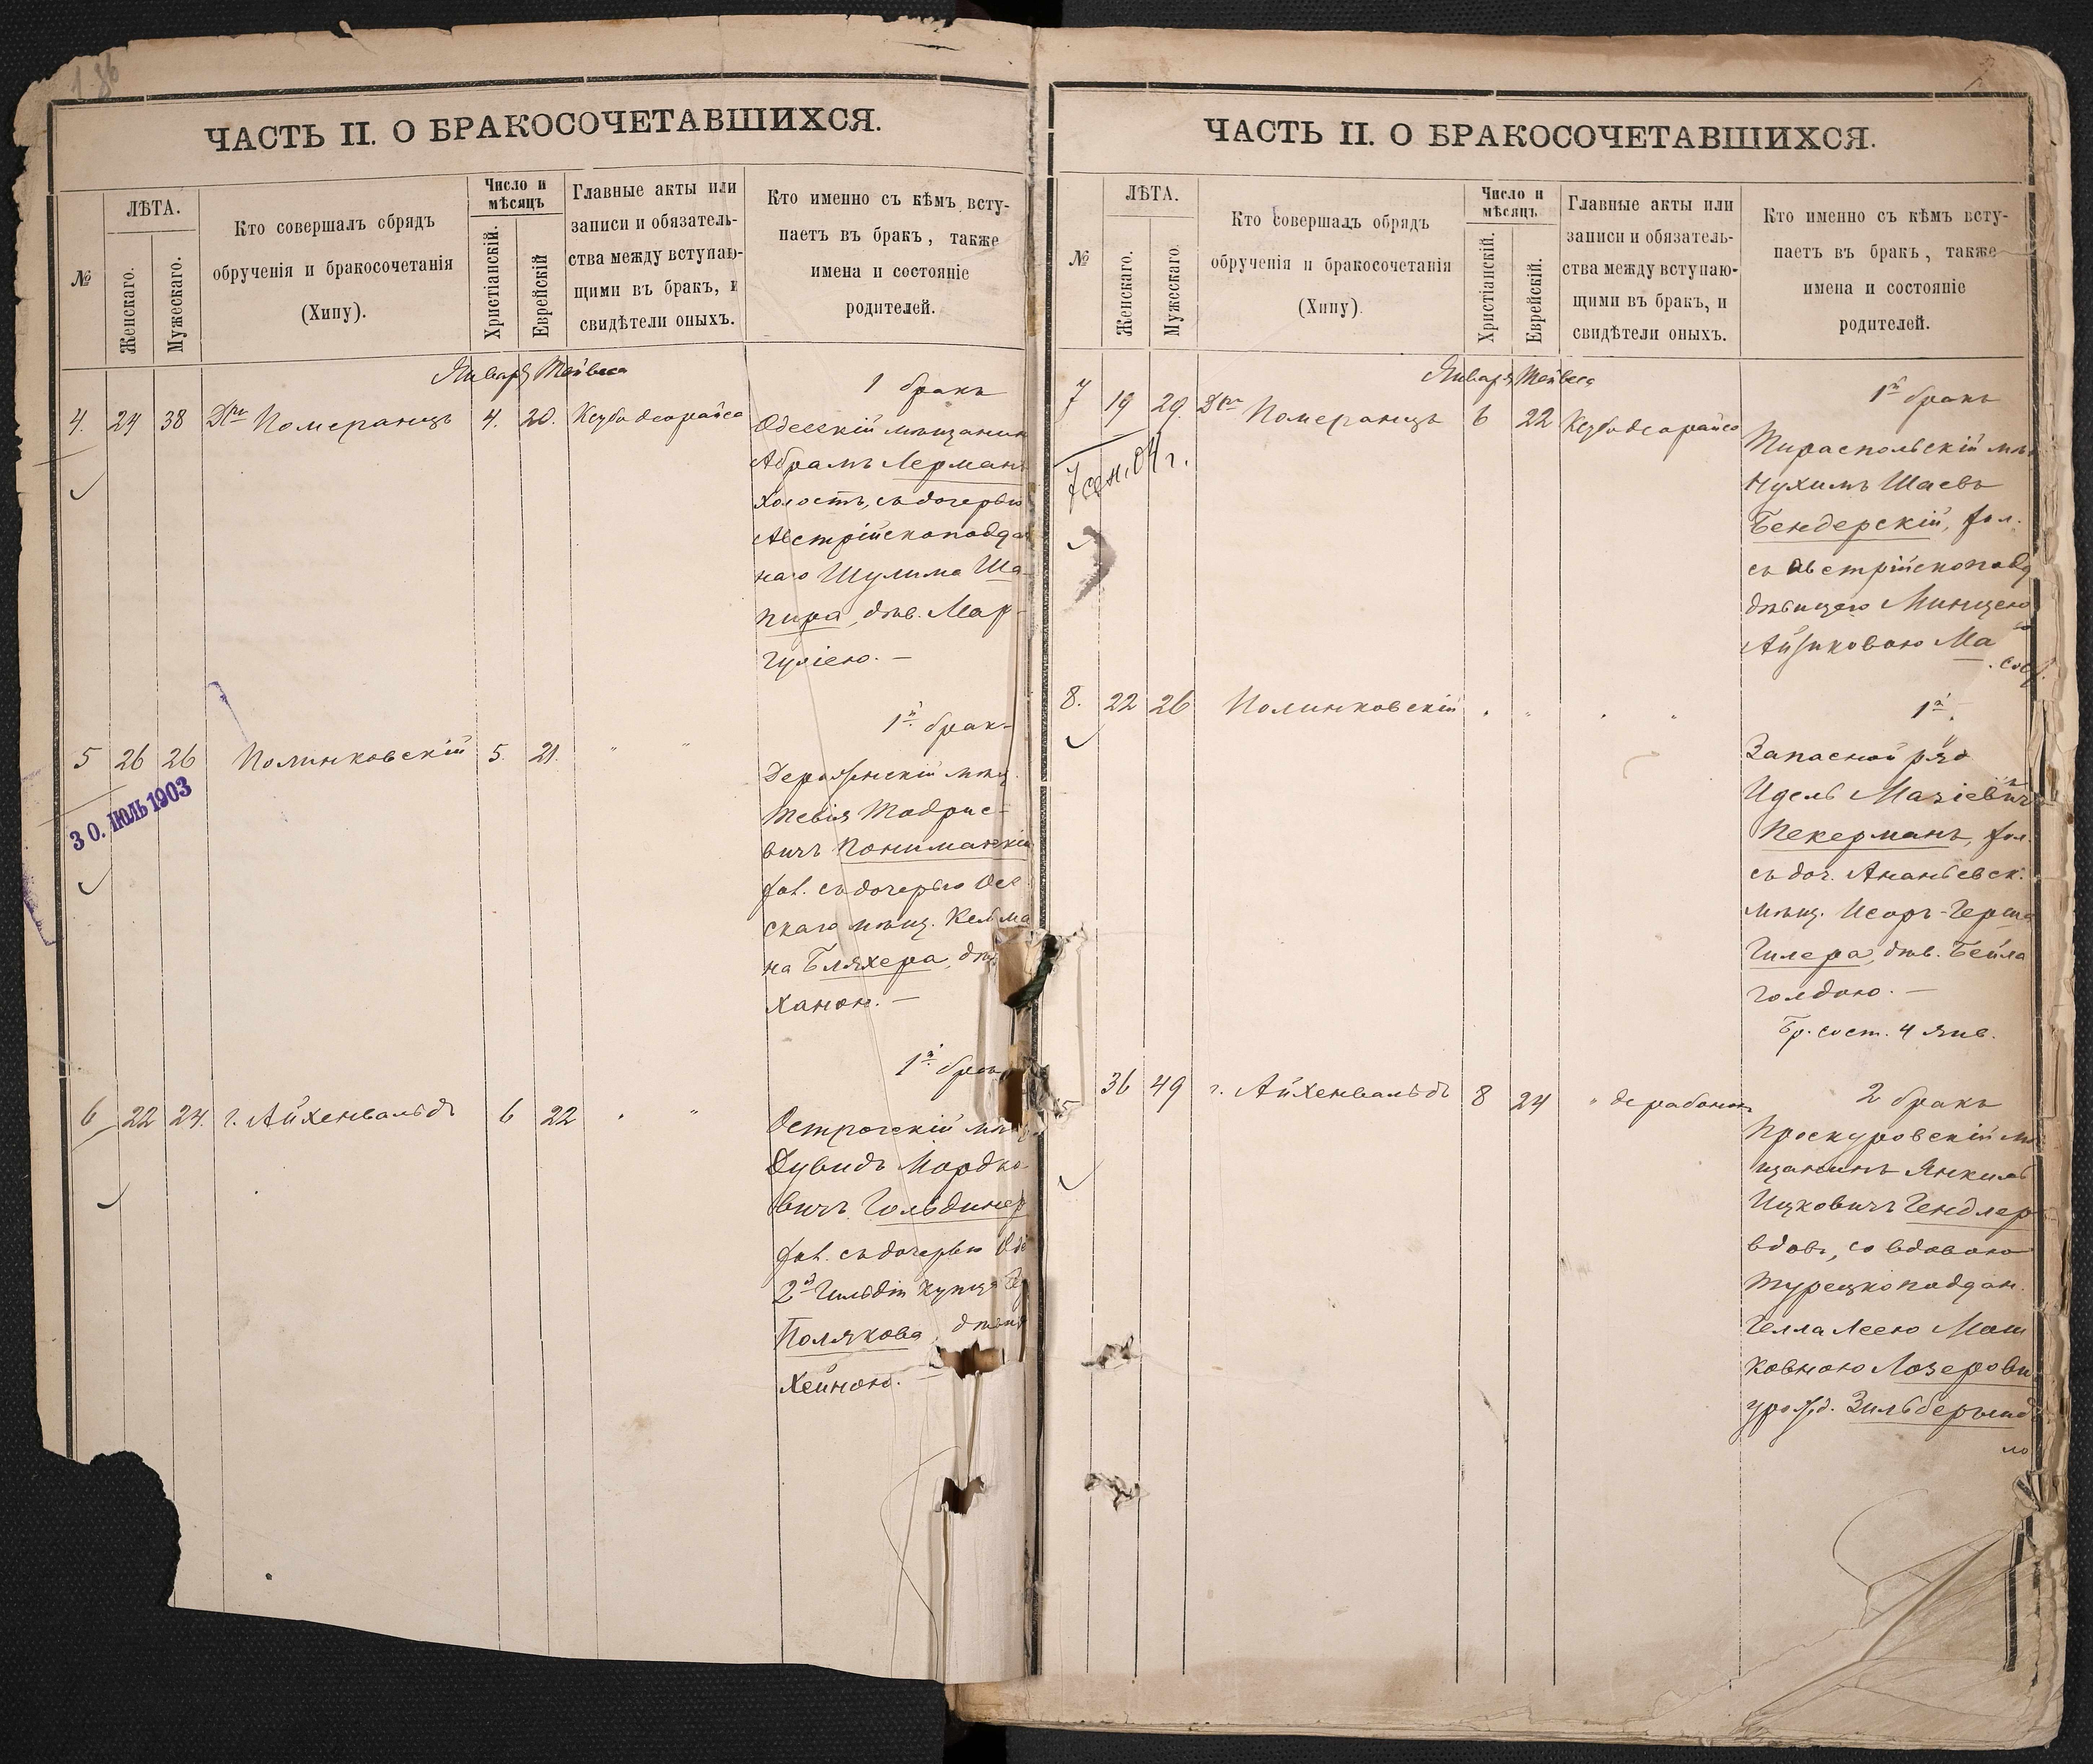 ЧАСТЬ II. О БРАКОСОЧЕТАВШИХСЯ.
№
ЛѢТА.
Женскаго.
Мужескаго.
Кто совершалъ обрядъ
обрученія и бракосочетанія
(Хипу).
Число и
мѣсяцъ
Христіанскій.
Еврейскій
Главные акты или
записи и обязатель-
ства между вступаю-
щими въ бракъ, и
свидѣтели оныхъ.
Кто именно съ кѣмъ всту-
паетъ въ бракъ, также
имена и состояніе
родителей.
Января Тейвеса
1 бракъ
4. 24 38 Дръ Померанцъ 4. 20. Ксубо деорайсо
Одесскій мѣщанинъ
Абрамъ Лерманъ
холостъ, съ дочерью
Австрійскоподдан
наго Шулима Ша-
пира, дѣв. Мар-
гуліею. —
1й бракъ
5 26 26 Полинковскій 5. 21. " "
Деражненскій мѣщ.
Тевія Тодрисо-
вичъ Пониманскій
хол. съ дочерью Одес
скаго мѣщ. Кельма
на Бляхера, дѣв
Ханою. —
30. ІЮЛЬ 1903
1й бракъ
6 22 24. г. Айхенвальдъ 6 22 " "
Острогскій мѣщ
Дувидъ Мордко
вичъ Гольдинер
хол. съ дочерью Оде
2й Гильдіи купца
Полякова, дѣвиц
Хейною. —
ЧАСТЬ II. О БРАКОСОЧЕТАВШИХСЯ.
№
ЛѢТА.
Женскаго.
Мужескаго.
Кто совершалъ обрядъ
обрученія и бракосочетанія
(Хипу).
Число и
мѣсяцъ
Христіанскій.
Еврейскій.
Главные акты или
записи и обязатель-
ства между вступаю-
щими въ бракъ, и
свидѣтели оныхъ.
Кто именно съ кѣмъ всту-
паетъ въ бракъ, также
имена и состояніе
родителей.
Января Тейвеса
1й бракъ
7 19 29. Дръ Померанцъ 6 22 Ксубо деорайсо
7 сен. 04 г.
Тираспольскій мѣщ
Нухимъ Шаевъ
Бендерскій, хол.
съ Австрійскоподд
дѣвицею Минцею
Айзиковою Ма
8. 22 26 Полинковскій " " " "
1й "
Запасной ряд
Идель Мазіевичъ
Пекерманъ, хол.
съ доч. Ананьевск.
мѣщ. Исоръ-Герша
Гилера, дѣв. Бейла
Голдою. —
Бр. сост. 4 янв.
36 49 г. Айхенвальдъ 8 24 " дерабонон
2 бракъ
Проскуровскій мѣ
щанинъ Янкель
Ицковичъ Гендлер
вдов, со вдовою
Турецкоподдан.
Гелла Леею Мош
ковною Лозерови
урожд. Зильберъ